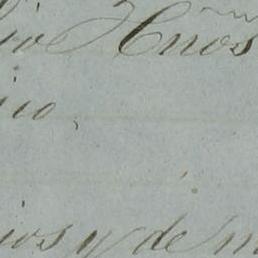 io Hnos
io,
ios y de m